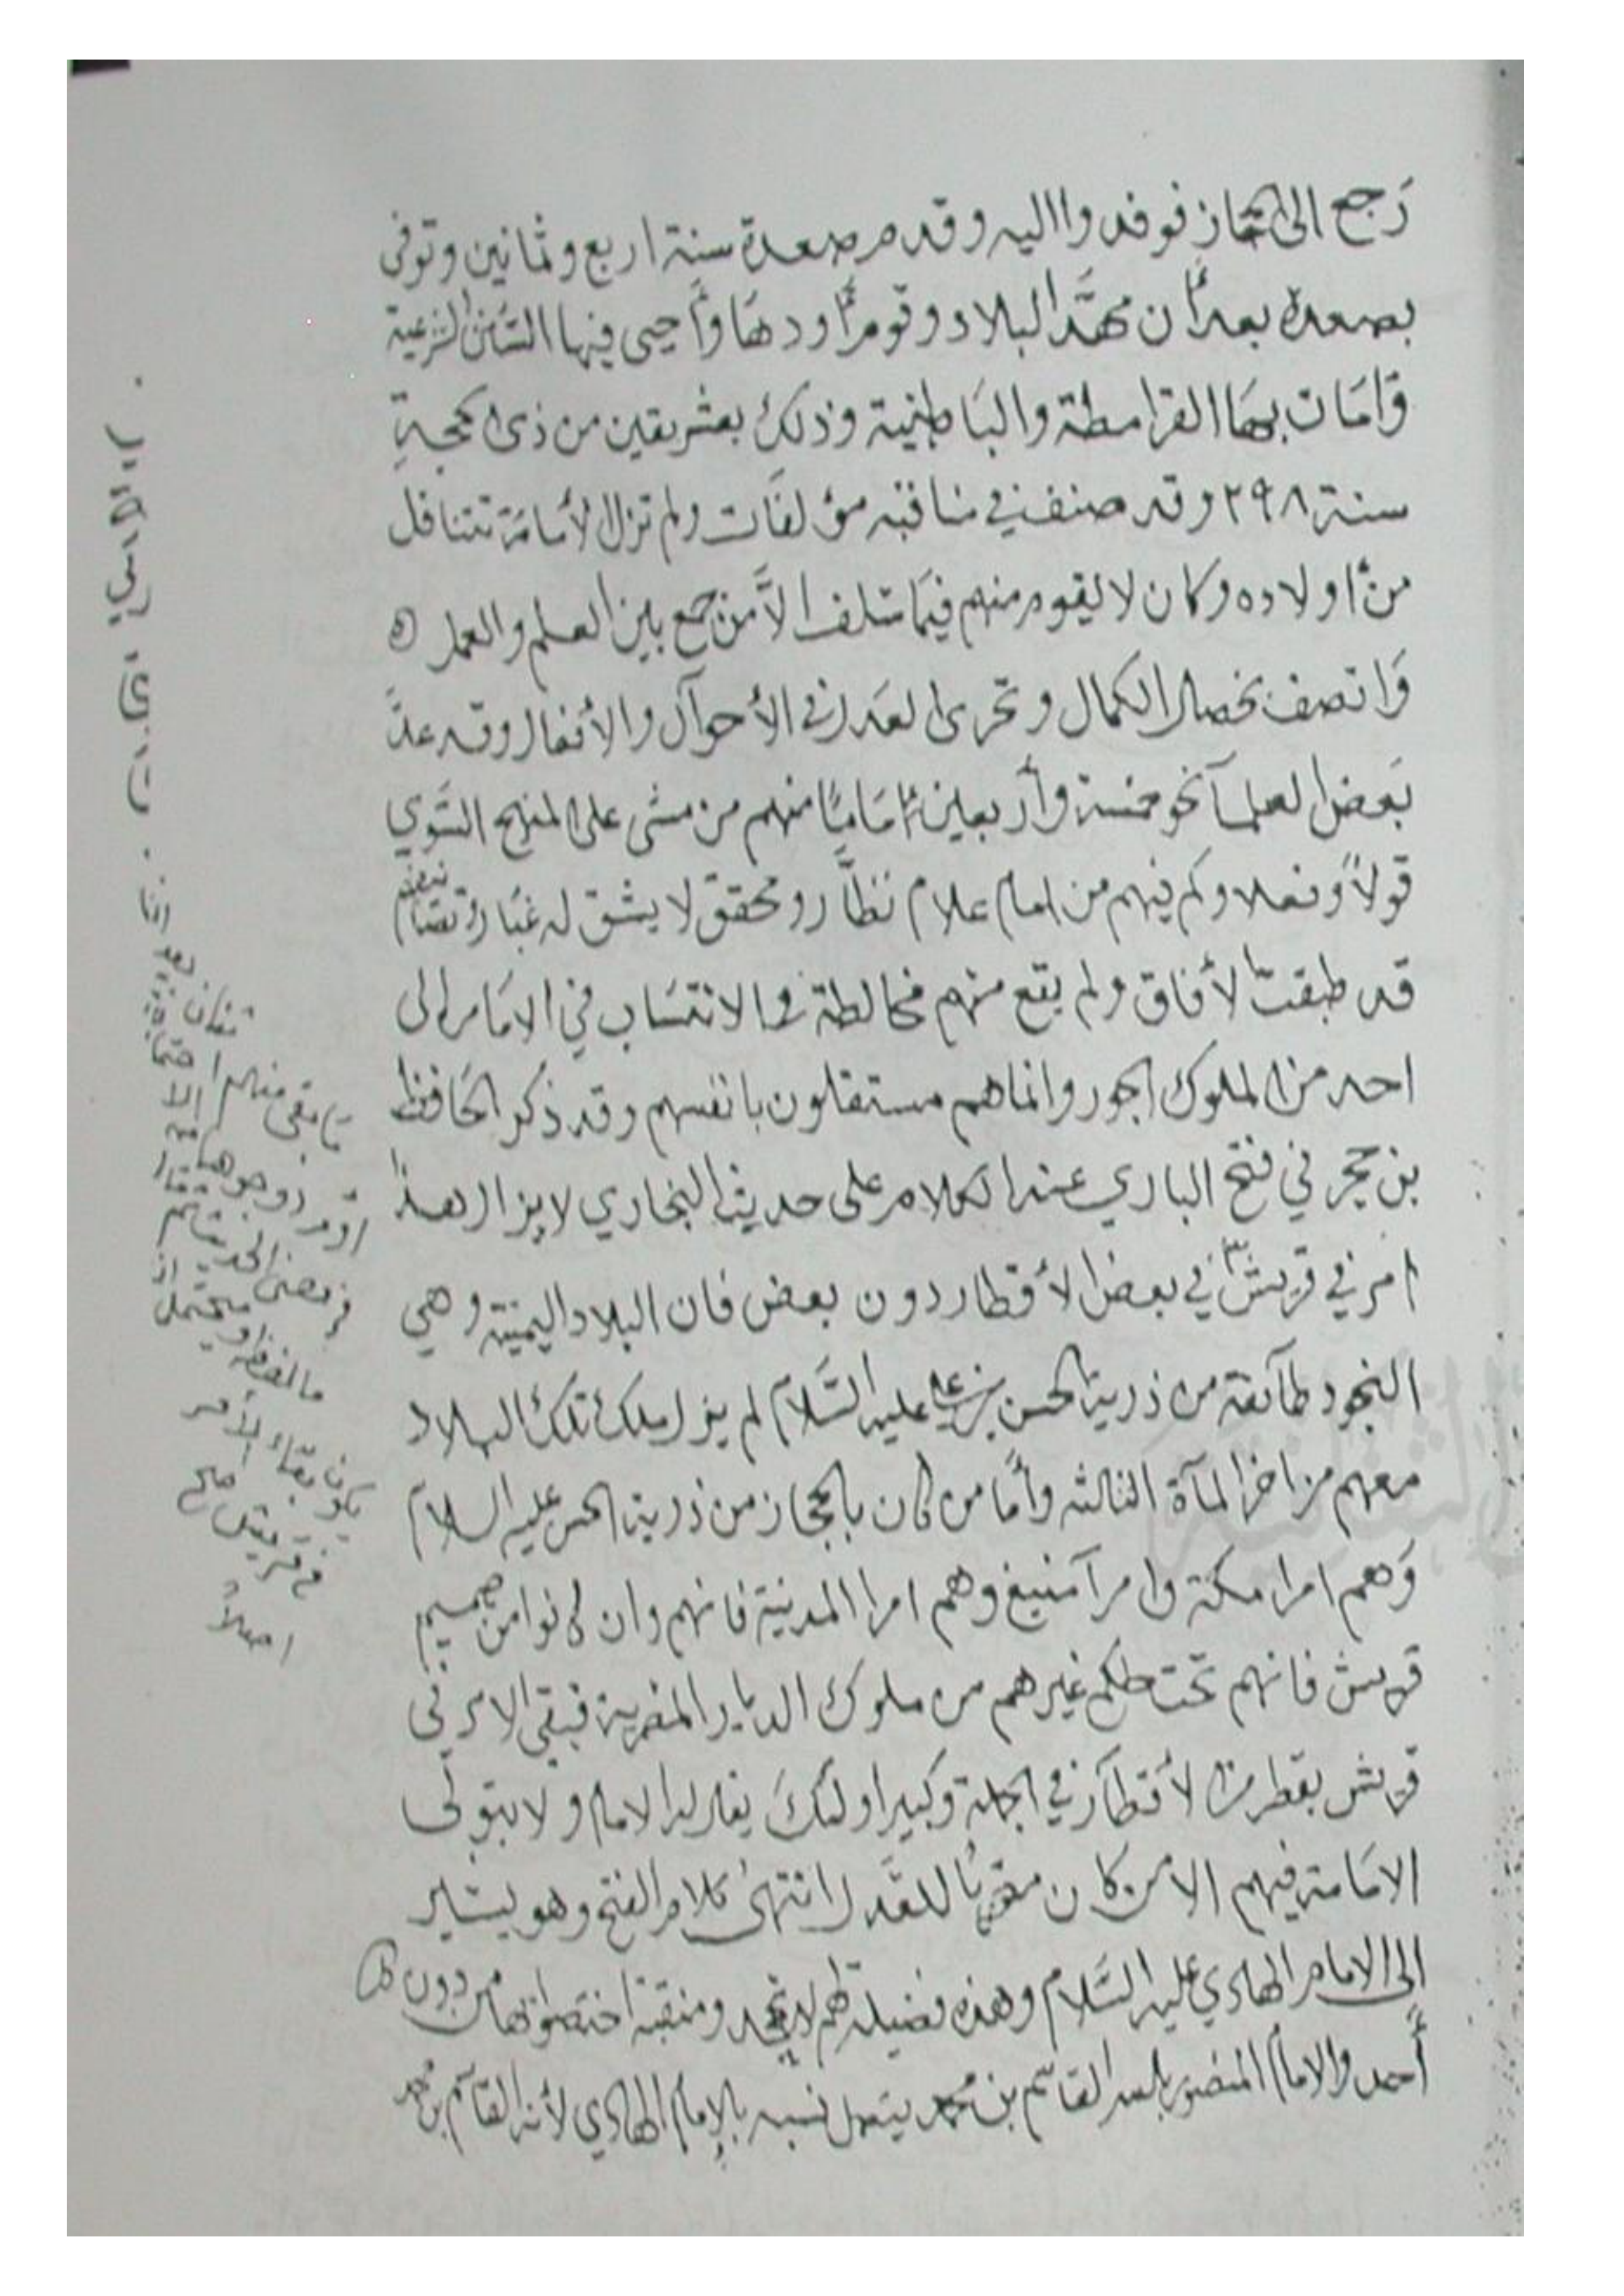 رَجع الى الحجاز فوفدوا اليه وقدم صعدة سنة اربع وثمانين وتوفى
بصعدة بعد أن مهَّد البلاد وقوم أودهَا وأحيى فيها السّنن الشرعية
وَامَات بهَا القرامطة والبَاطنية وذلك بعشر بقين من ذى الحجة
سنة ٢٩٨ وقد صنف في مناقبه مؤلفات ولم تزل الأمامَة تتناقل
من أولاده وكان لا يقوم منهم فيمَا سَلف الاَّ من جمع بين العلم والعمل
وَاتصف بخصال الكمال وتحرى العَدل في الأحوآل والأفعال وقد عدّ
بَعض العلمآ نحو خمسة وأربعين إمَامًا منهم من مشى على المنهج السَّوي
قولاً وفعلا وكم فيهم من امام علام نظَّار ومحقق لا يشق له غبَار وتصَانيفهم
قد طبقت الأفاق ولم يقع منهم مخالطة ولا انتسَاب في الامَامه الى
احد من الملوك الجور وانما هم مستقلون بانفسهم وقد ذكر الحَافظ
بن حجر في فتح الباري عند الكلام على حديث البخاري لا يزال هذا
امر في قريش في بعض الأقطار دون بعض فان البلاد اليمنية وهي
النجود طآئفة من ذرية الحسن بن علي عليه السَّلام لم يزل ملك تلك البلاد
معهم من اخر المآة الثالثه وأمَّا من كان بالحجاز من ذرية الحسن عليه السلام
وَهم امرا مكة وامرآ ينبع وهم امرا المدينة فانهم وان كانوا من صميم
قريش فانهم تحت حكم غيرهم من ملوك الديار المصرية فبقى الامر في
قريش بقطر من الأقطآر في الجملة وكبير اولئك يقال له الامام ولا يتولى
الامَامة فيهم الا من كان متحريًا للعَدل انتهىٰ كلام الفتح وهو يشير
الى الامام الهادي عليه السَّلام وهذه فضيلة لهم لا تجحد ومنقبة اختصوا بهَا من دون
أحد والامام المنصور بالله القاسم بن محمد يتصل نسبه بالإمام الهادي لأنه القاسم بن محمد
ما بقى منهم اثنان
يكون بقاء الأمر
في قريش
اصلاً